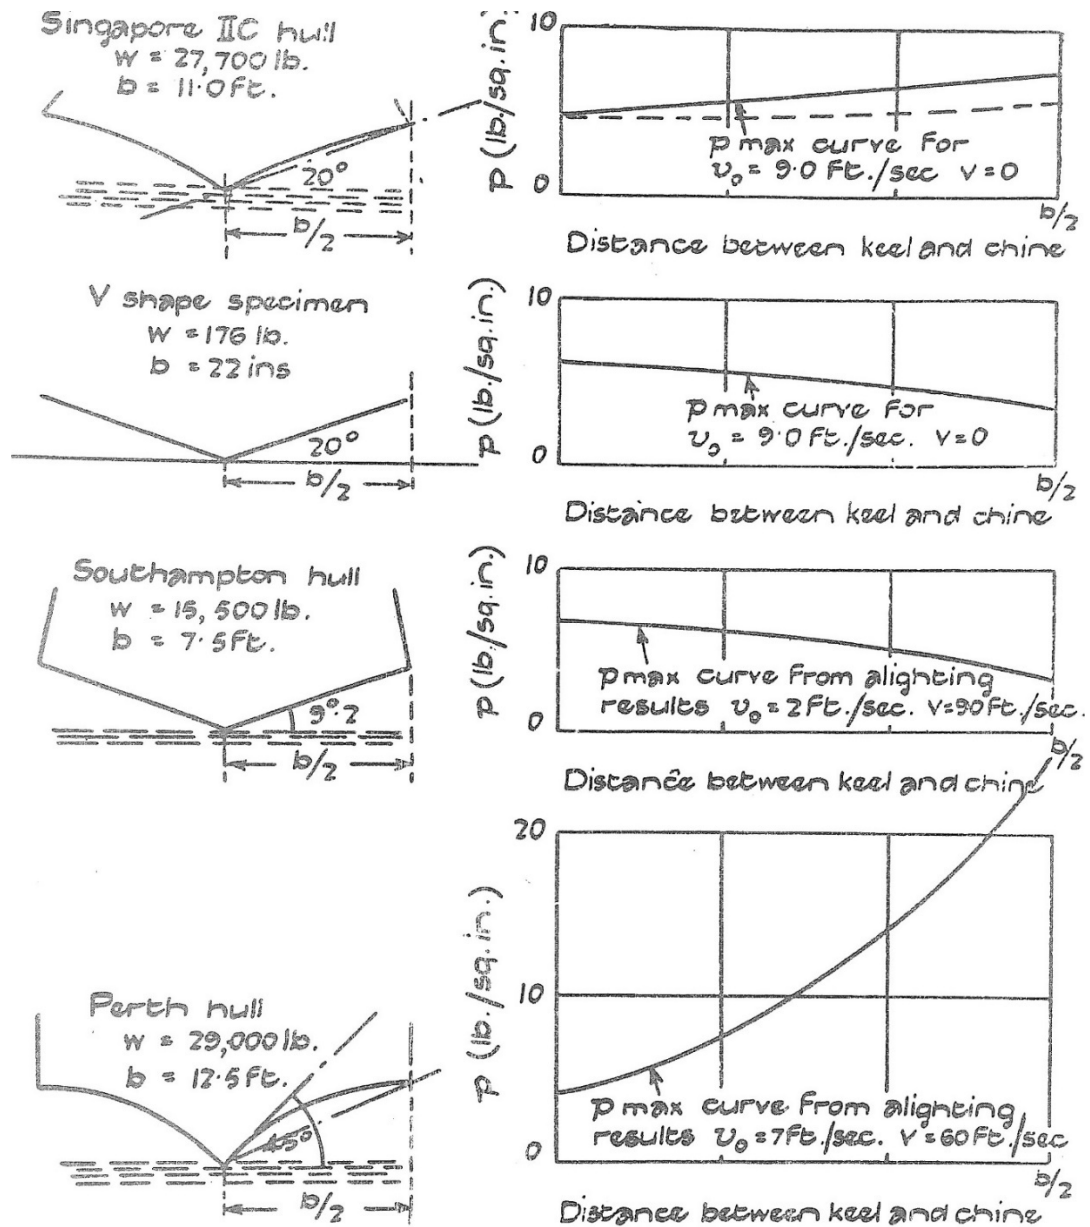 Singapore IIC hull
w = 27,700 lb.
b = 11·0 ft.
20°
b/2
p (lb./sq. in.)
10
0
p max curve for
v₀ = 9·0 ft./sec v=0
b/2
Distance between keel and chine
V shape specimen
w = 176 lb.
b = 22 ins
20°
b/2
p (lb./sq. in.)
10
0
p max curve for
v₀ = 9·0 ft./sec. v=0
b/2
Distance between keel and chine
Southampton hull
w = 15,500 lb.
b = 7·5 ft.
9°·2
b/2
p (lb./sq. in.)
10
0
p max curve from alighting
results v₀ = 2 ft./sec. v=90 ft./sec.
b/2
Distance between keel and chine
Perth hull
w = 29,000 lb.
b = 12·5 ft.
45°
b/2
p (lb./sq. in.)
20
10
0
p max curve from alighting
results v₀ = 7 ft./sec. v = 60 ft./sec
b/2
Distance between keel and chine